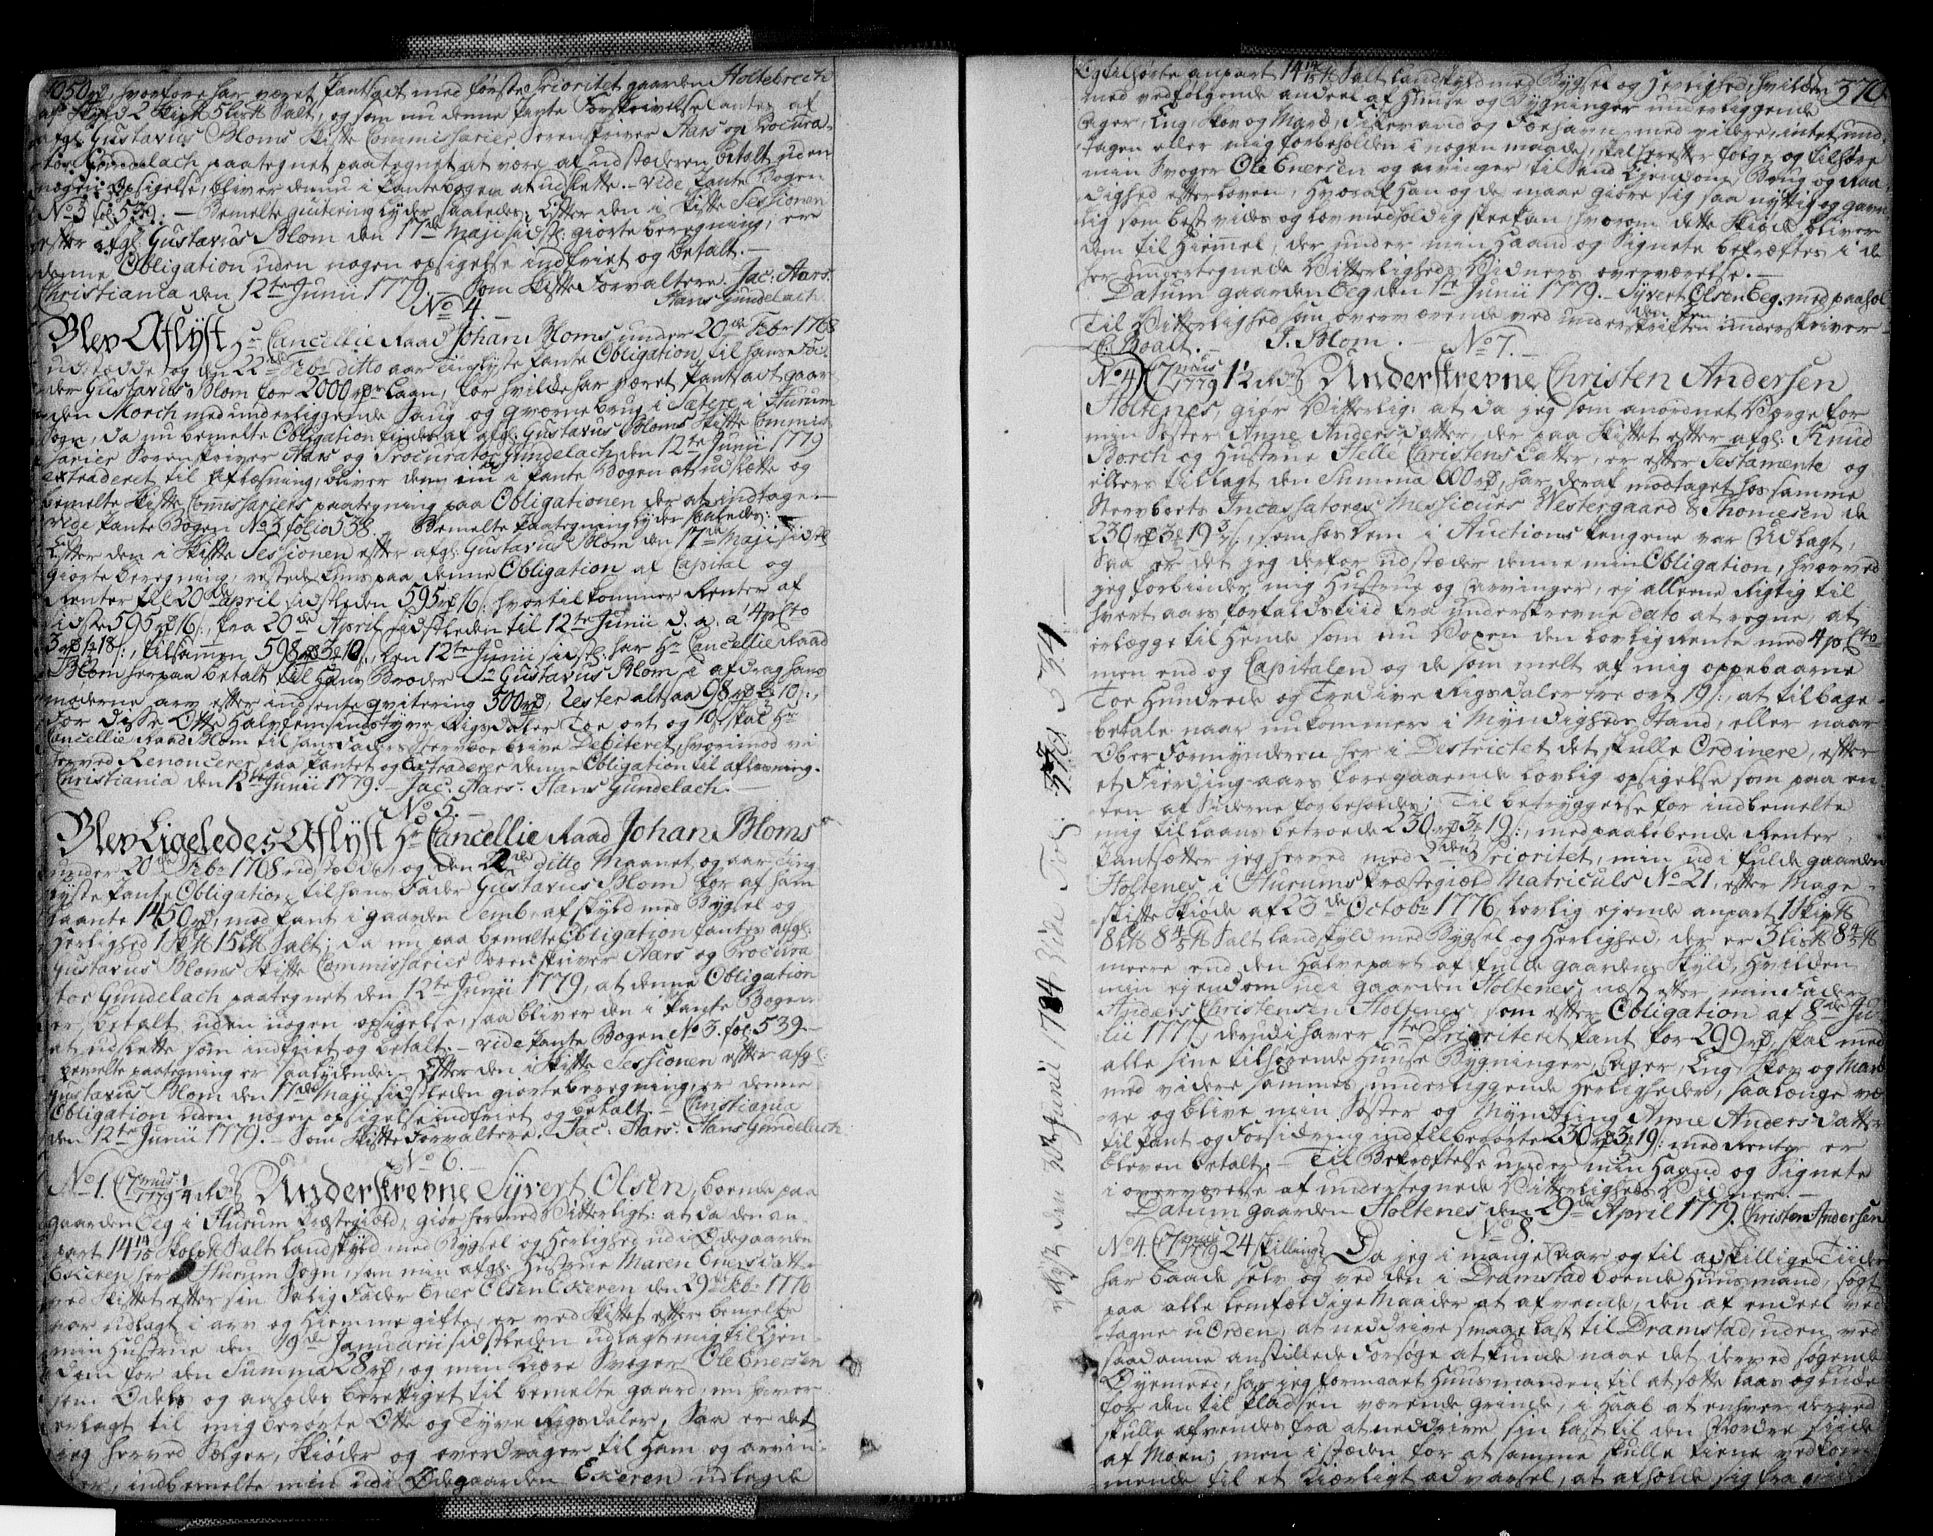 1050 rd, hvorfore har været Pantsat med første Prioritet gaarden Holtebrech
af Skyld 2 Skip℔ 5 lis℔ Salt, og som nu denne Pante Forskrivelse antes af
afgl. Gustavus Bloms Skifte Commissarier, Sorenskriver Aars og Procura-
tor Gundelach paategnet paategnet at være af udstæderen betalt uden
nogen opsigelse, bliver den nu i Pantebogen at udslette. - vide Pante Bogen
No 3 fol. 539. - Bemelte quitering lyder saaledes: Efter den i Skifte Sessionen
efter afgl. Gustavus Blom den 17de Maji sidstl. giorte beregning, er
denne Obligation uden nogen opsigelse indfriet og betalt. -
Christiania den 12te Junii 1779. - Som Skifte Forvaltere. Jac: Aars.
No 4. - Hans Gundelach.
Blev Aflyst Hr Cancellie Raad Johan Bloms under 20de Febr 1768
udstædde og den 22de Febr ditto aar tinglyste Pante Obligation til hans Fa-
der Gustavus Blom for 2000 rdr Laan, for hvilke har været Pantsadt gaar-
den Morch med underliggende Saug og Qværnebrug i Sætere i Hurum
Sogn, da nu bemelte Obligation findes af afgl. Gustavus Bloms Skifte Commis-
sarier Sorenskriver Aars og Procurator Gundelach den 12te Junii 1779
extraderet til Aflæsning, bliver den nu i Pante Bogen at udslætte og
bemelte Skifte Commissariers paategning paa Obligationen der at indtage. -
vide Pante Bogen No 3 folio 538. Bemelte Paategning lyder saaledes: -
Efter den i Skifte Sessionen efter afgl. Gustavus Blom den 17de Maji sidstl.
giorte beregning, restede kuns paa denne Obligation af Capital og
Renter til 20de april sidstleden 595 rd 16 s: hvortil kommer Renter af
sidste 595 rd 16 s: fra 20de April sidstleden til 12te Junii d. a. a 4 pCto
3 rd 1 ort 18 s:, tilsammen 598 rd 3 ort 10 s:, den 12te Junii sidstl. har Hr Cancellie Raad
Blom herpaa betalt til Hans Broder Gustavus Blom i afdrag hans
moderne arv efter indsente qvitering 500 rd, Rester altsaa 98 rd 2 ort 10 s:,
For disse Otte Halvfemsindstyve Rigsdaler Toe ort og 10 s: skal Hr
Cancellie Raad Blom til hans Faders Sterboe blive Debiteret, hvorimod vi
herved Renoncerer paa Pantet og Extraderer denne Obligation til aflæsning. -
Christiania den 12te Junii 1779. - Jac: Aars. Hans Gundelach. -
No 5. -
Blev Ligeledes Aflyst Hr Cancellie Raad Johan Bloms
under 20de Febr 1768 udstædde, og den 22de ditto Maanet og aar Ting-
lyste Pante Obligation til hans Fader Gustavus Blom for af ham
laante 1450 rd, mod Pant i gaarden Semb, af skyld med Bygsel og
Herlighed 1 Sk℔ 15 l℔ Salt; Da nu paa bemelte Obligation fantes afgl.
Gustavus Bloms Skifte Commissarier Sorenskriver Aars og Procura-
tor Gundelach paategnet den 12te Junii 1779, at denne Obligation
er betalt uden nogen opsigelse, saa bliver den i Pante Bogen
at udslette som indfriet og betalt. - vide Pante Bogen No 3. fol: 539. -
bemelte paategning er saalydende: - Efter den i Skifte Sessionen efter afgl.
Gustavus Blom den 17de Maji sidstleden giorte beregning, er denne
Obligation uden nogen opsigelse indfriet og betalt. - Christiania
den 12te Junii 1779. - Som Skifte Forvaltere. Jac: Aars. Hans Gundelach
No 6. -
No 1. Underskrevne Syvert Olsen, boende paa
gaarden Eeg i Hurum Præstegield, giør hermed Vitterligt: at da den an-
part 14 14/15 Skolp℔ Salt Landskyld med Bygsel og Herlighed udi Ødegaarden
Ekeren her i Hurum Sogn, som min afgl: Hustrue Maren Enersdatter
ved Skiftet efter sin Salig Fader Ener Olsen Ekeren den 29de 1776
var udlagt i arv og Hiemmegifte, er ved Skiftet efter bemelte
min Hustrue den 19de Januarii sidstleden udlagt mig til Eien-
dom for den Summa 28 rd, og men kiære Svoger Ole Enersen
som Odels og aasædes berettiget til bemelte gaard, nu haver
erlagt til mig berørte Otte og Tyve Rigsdaler, Saa er det
jeg herved Sælger, Skiøder og overdrager til Ham og arvin-
ger, indbemelte min udi Ødegaarden Ekeren udlagde
370.
og tilhørte anpart 14 14/15 ℔ Salt Landskyld med Bygsel og Herlighed, hvilken
med vedfølgende andeel af Huuse og Bygninger underliggende
Ager, Eng, Skov og Mark, Fiskevand og Fæehavn med videre, intet und-
tagen eller mig forbeholden i nogen maade, skal herefter følge og tilhøre
min Svoger Ole Enersen og arvinger til Sand Eyendom, Brug og Raa-
dighed efter Loven, Hvoraf Han og de maae giøre sig saa nyttig og gavn-
lig som best vides og lovmedholdig skee kan, hvorom dette Skiøde bliver
dem til Hiemmel, der under min Haand og Signete bekræftes i de
her undertegnede Vitterligheds Vidners overværelse. -
Datum gaarden Eeg den 1te Junii 1779. - Syvert Olsen Eeg. med paahol
Til Vitterlighed som overværende ved underskriften underskriver
C: Boalt. - J. Blom. - No 7. -
No 4) Underskrevne Christen Andersen
Holtenes, giør Vitterlig: at da jeg som anordnet Værge for
min Søster Anne Anders Datter, der paa Skiftet efter afgl: Knud
Borch og Hustrue Helle Christens Datter, er efter Testamente og
ellers tillagt den Summa 600 rd, har deraf modtaget hos samme
Stervboets Incassatores Messieurs Westergaard & Thomesen de
230 rd 3 ort 19 s:, som hos dem i Auctions Pengene var Udlagt,
Saa er det jeg derfor udstæder denne min Obligation, hvorved
jeg forbinder mig Hustrue og Arvinger, ej alleene Rigtig til
hvert aars forfaldstiid fra underskrevne dato at regne, at
erlægge til Hende som nu Voxen den lovlig rente med 4 pCto
men end og Capitalen og de som melt af mig oppebaarne
Toe Hundrede og Tredive Rigsdaler tre ort 19 s:, at tilbage-
betale naar nu kommer i Myndigheds Stand, eller naar
Ober Formynderen her i Districtet det skulle Ordinere, efter
et Fierding aars foregaaende lovlig opsigelse som paa en-
ten af Siderne forbeholdes; Til betryggelse for indbemelte
mig til laans betroede 230 rd 3 ort 19 s:, med paaløbende Renter,
Pantsætter jeg herved med 2den Prioritet, min udi fulde gaarden
Holtenes, i Hurums Præstegiæld Matriculs No 21, efter Mage-
skifte Skiøde af 23de Octobr 1776, lovlig ejende anpart 1 Skip℔
8 l℔ 8 4/5 ℔ Salt Landskyld med Bygsel og Herlighed, der er 3 lis℔ 8 4/5 ℔
meere end den Halvepart af fulde gaardens skyld, Hvilken
min ejendom udi gaarden Holtenes, næst efter min Fader
Anders Christensen Holtenes, som efter Obligation af 8de Ju-
lii 1777, derudi haver 1te Prioriteret Pant for 299 rd, skal med
alle sine tilhørende Huuse Bygninger, Ager, Eng, Skov og Mark
med videre sammes underliggende Herligheder, saalænge væ-
re og blive min Søster og Myndling Anne Anders Datter
til Pant og Forsikring indtil berørte 230 rd 3 ort 19 s: med Renter er
bleven betalt. - Til Bekræftelse under min Haand og Signete
i overværelse af undersegnede Vitterligheds Vidner. -
Datum gaarden Holtenes den 29de April 1779. Christen Andersen
No 8.
No 4. 24 skilling. Da jeg i mange aar og til adskillige Tiider
har baade selv og ved den i Dramstad boende Huusmand, søgt
paa alle lemfældige Maader at afvende, den af endeel ved-
tagne uorden, at neddrive smaae last til Dramstad, uden ved
saadanne anstillede Forsøge at kunde naae det derved søgende
Øyemeed, har jeg formaaet Huusmanden til at sætte laas og lukke
for den til Pladsen værende grinde, i Haab at enhver derved
skulle afvendes fra at neddrive sin last til den Nordre siide
af Moen; men i steden for at samme skulle tiene vedkom-
mende til et kiærligt advarsel, at afholde sig fra
aflyst den Junii 1784 Vide Fol: 573 & 574